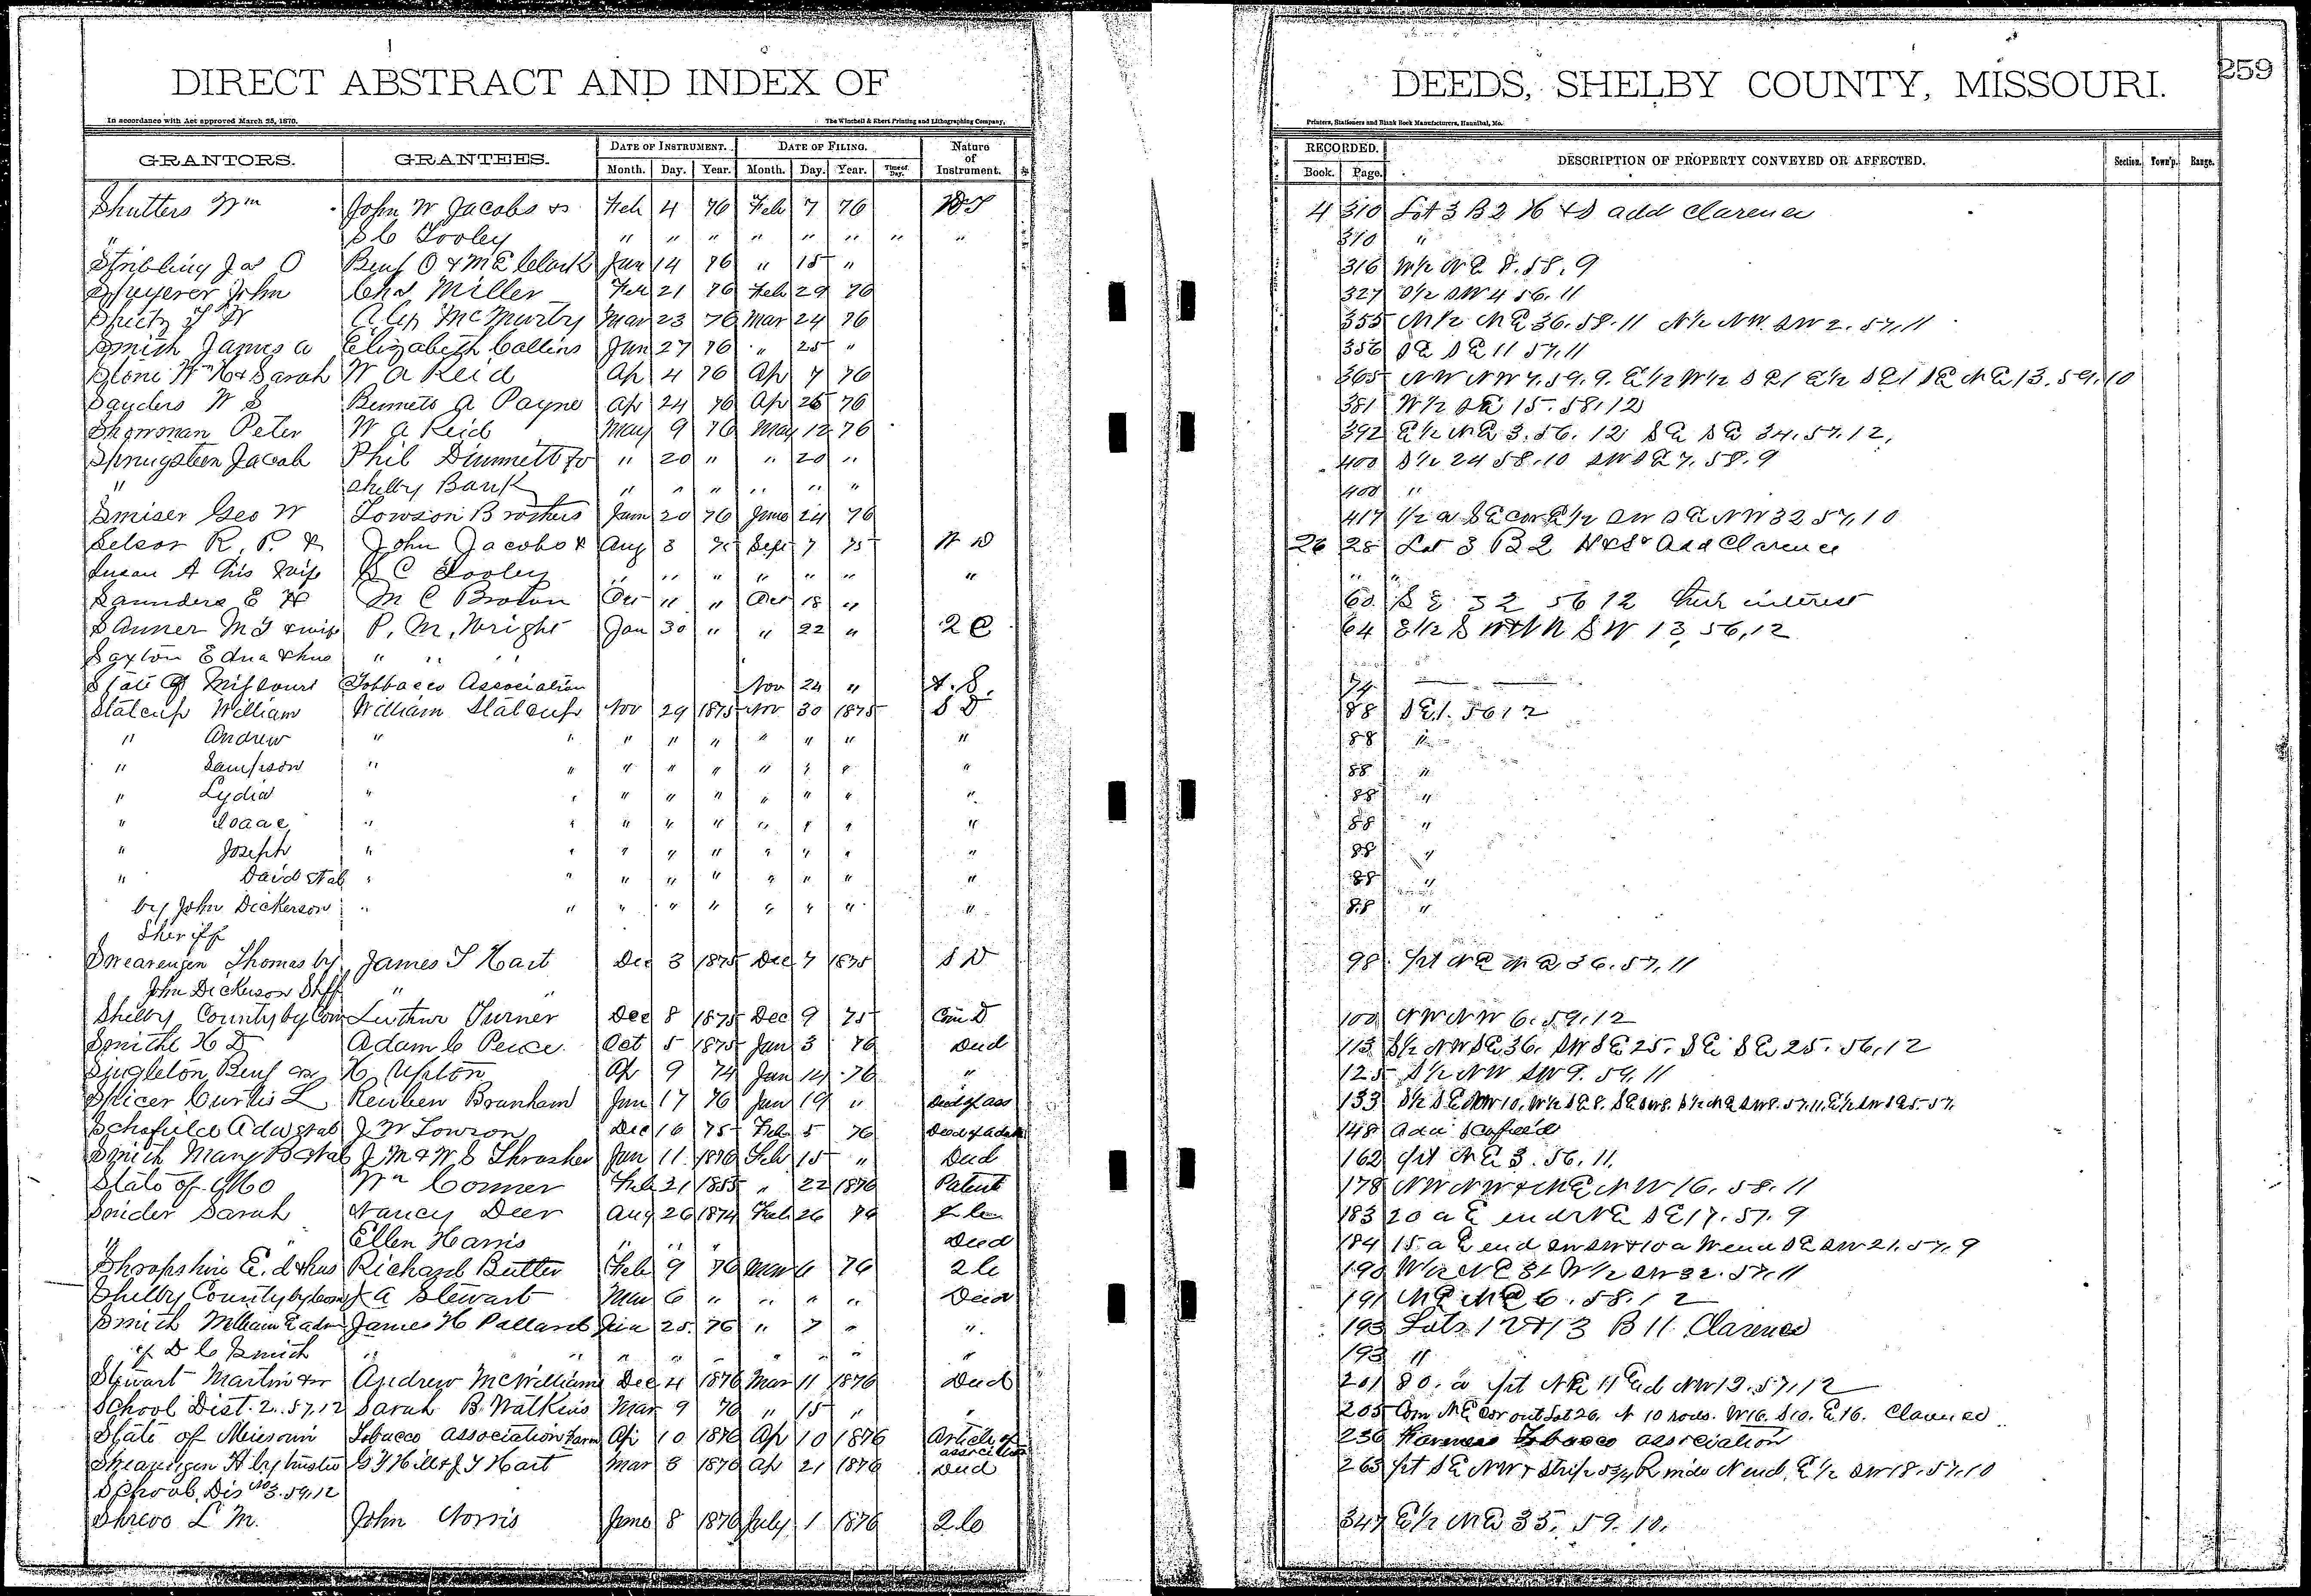 DIRECT ABSTRACT AND INDEX OF DEEDS, SHELBY COUNTY, MISSOURI. 259
In accordance with Act approved March 25, 1870. The Winchell & Ebert Printing and Lithographing Company, Printers, Stationers and Blank Book Manufacturers, Hannibal, Mo.
GRANTORS. GRANTEES. DATE OF INSTRUMENT. DATE OF FILING. Nature of Instrument. RECORDED. DESCRIPTION OF PROPERTY CONVEYED OR AFFECTED. Section. Town'p. Range.
Month. Day. Year. Month. Day. Year. Time of Day. Book. Page.
Shutters Wm John W Jacobs & Feb 4 76 Feb 7 76 4 310 Lot 3 B 2 H & S add Clarence
" S C Tooley " " " " " " " " 310 "
Stribling Jas O Benj O & M E Clark Jan 14 76 " 15 " 316 W 1/2 N E 8. 58. 9
John Chas Miller Feb 21 76 Feb 29 76 327 S 1/2 SW 4 56. 11
Alex McMurtry Mar 23 76 Mar 24 76 355 N 1/2 N E 36. 58. 11 N 1/2 NW. SW 2. 57. 11
Smith James A Elizabeth Collins Jan 27 76 " 25 " 356 S E S E 11 57. 11
Stone Wm H & Sarah W A Reid Ap 4 76 Ap 7 76 365 NW NW 7. 59. 9. E 1/2 W 1/2 S E 1 E 1/2 S E 1 S E N E 13. 59. 10
Sanders W S A Payne Ap 24 76 Ap 25 76 381 W 1/2 S E 15. 58. 12
Showman Peter W A Reid May 9 76 May 12 76 392 E 1/2 N E 3. 56. 12 S E S E 34. 57. 12,
Jacob Phil Dimmett to " 20 " " 20 " 400 S 1/2 24 58. 10 SW S E 7. 58. 9
" Shelby Bank " " " " " " 400 "
Smiser Geo W Towson Brothers Jan 20 76 June 24 76 417 1/2 a S E cor E 1/2 SW S E NW 32 57. 10
Selsor R. P. & John Jacobs & Aug 3 75 Sept 7 75 W D 26 28 Lot 3 B 2 H & S Add Clarence
Susan A his wife S C Tooley " " " " " " " " "
Saunders E H M C Brown Oct 11 " Oct 18 " 60 S E 32 56 12 their interest
Sanner M J & wife P. M. Wright Jan 30 " " 22 " 2 C 64 E 1/2 S W & W N S W 13, 56, 12
Saxton Edna & hus " " "
State of Missouri Tobbacco Association Nov 24 " A. S. 74
Statcup William William Statcup Nov 29 1875 Nov 30 1875 S D 88 S E 1. 56 12
" Andrew " " " " " " " " " 88 "
" Sampson " " " " " " " " " 88 "
" Lydia " " " " " " " " " 88 "
" Isaac " " " " " " " " " 88 "
" Joseph " " " " " " " " " 88 "
" David et al " " " " " " " " " 88 "
by John Dickerson " " " " " " " " " 88 "
Sheriff
Swearengen Thomas by James T Hart Dec 3 1875 Dec 7 1875 S D 98 pt N E N E 36. 57. 11
John Dickerson Shff " "
Shelby County by Com Luther Turner Dec 8 1875 Dec 9 75 Com D 100 NW NW 6. 59. 12
Smithe H D Adam C Peice Oct 5 1875 Jan 3 76 Deed 113 S 1/2 NW S E 36. SW S E 25. S E S E 25. 56. 12
Singleton Benj H Upton Ap 9 74 Jan 14 76 " 125 S 1/2 NW SW 9. 59. 11
Spicer Curtis L Reuben Branham Jan 17 76 Jan 19 " Deed of ass 133
Schofield Ada et al J W Towson Dec 16 75 Feb 5 76 148
Smith Mary B et al J M & W S Thrasher Jan 11 1876 Feb 15 " Deed 162 pt N E 3. 56. 11.
State of Mo Wm Conner Feb 21 1855 " 22 1876 Patent 178 NW NW & N E N W 16. 58. 11
Snider Sarah Nancy Deer Aug 26 1874 Feb 26 76 183 20 a E end N E S E 17. 57. 9
" Ellen Harris " " " Deed 184 15 a E end SW SW & 10 a W end S E SW 21. 57. 9
Shropshire E. d & hus Richard Butler Feb 9 76 Mar 6 76 2 C 190 W 1/2 N E 31 W 1/2 SW 32. 57. 11
Shelby County by Com J A Stewart Mar 6 " " " " Deed 191 N E N E 6. 58. 12
Smith William E adm James H Pollard Jan 25. 76 " 7 " " 193 Lots 12 & 13 B 11 Clarence
of D C Smith " " " " " " " " " 193 "
Stewart Martin Andrew McWilliams Dec 4 1876 Mar 11 1876 Deed 201 80. a pt N E 11 & NW 12. 57. 12
School Dist. 2. 57. 12 Sarah B. Watkins Mar 9 76 " 15 " " 205 Com N E cor out Lot 26. N 10 rods. W 16. S 10. E 16. Clarence
State of Missouri Tobacco association Farm Ap 10 1876 Ap 10 1876 Article of association 236 Farmers Tobacco association
H by trustee G T Hill & J T Hart Mar 8 1876 Ap 21 1876 Deed 263 pt S E NW & Strip 5 3/4 R wide N end, E 1/2 SW 18. 57. 10
School Dis No 3. 59. 12
L M. John Norris June 8 1876 July 1 1876 2 C 347 E 1/2 N E 35. 59. 10.